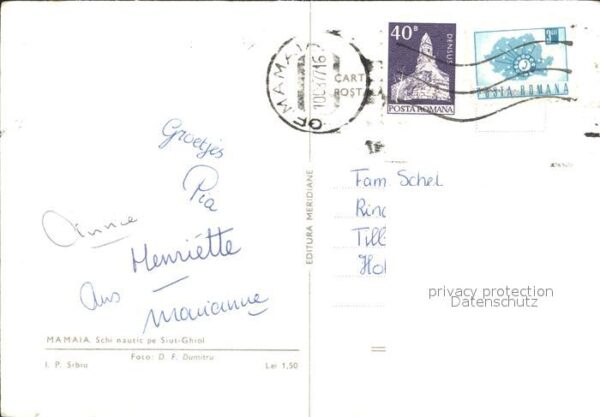 OF. MAMAIA
10 08 77 16
CARTE
POȘTALĂ
40 B
DENSUȘ
POSTA ROMANA
3 LEI
POSTA ROMANA
Groetjes
Pia
Henriétte
Ans
Marianne
MAMAIA. Schi nautic pe Siut-Ghiol
Foto: D. F. Dumitru
I. P. Sibiu
Lei 1,50
EDITURA MERIDIANE
Fam Schel
Rin
Till
Hol
privacy protection
Datenschutz